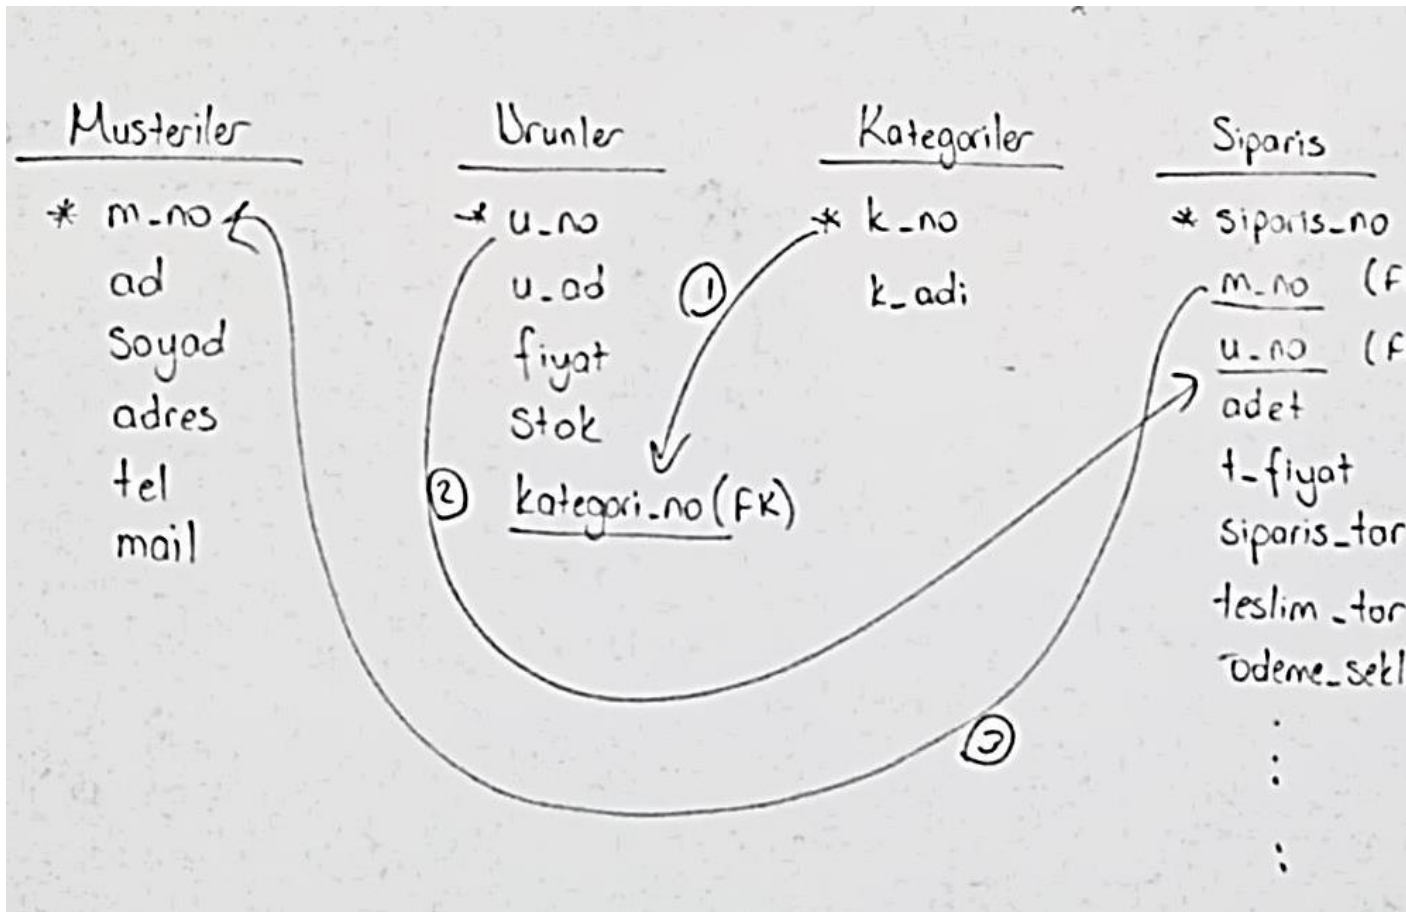 Musteriler
* m_no
ad
soyad
adres
tel
mail
Urunler
* u_no
u_ad
fiyat
stok
kategori_no (FK)
Kategoriler
* k_no
k_adi
Siparis
* siparis_no
m_no (F
u_no (F
adet
t_fiyat
siparis_tar
teslim_tar
odeme_sekl
1
2
3